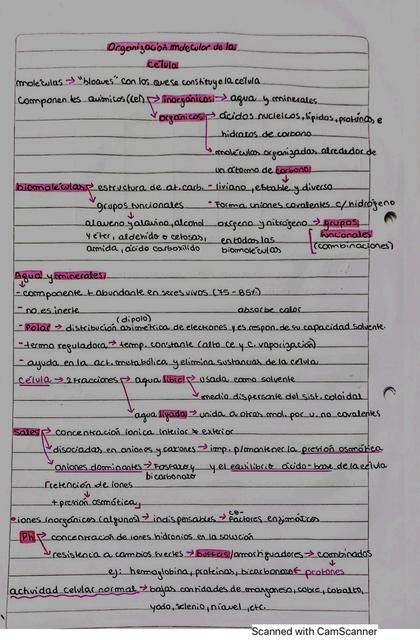 Organización molecular de la
célula
moléculas → "bloques" con los que se constituye la célula
Componentes químicos (cel) → inorgánicos → agua y minerales
→ orgánicos → ácidos nucleicos, lípidos, proteínas, e
hidratos de carbono
→ moléculas organizadas alrededor de
un átomo de carbono
biomoléculas → estructura de at. carb. - liviano, estable y diverso
→ grupos funcionales - Forma uniones covalentes c/hidrógeno
alqueno y alquino, alcohol oxígeno y nitrógeno → grupos
y éter, aldehído o cetosas, en todas las funcionales
amida, ácido carboxílido biomoléculas (combinaciones)
Agua y minerales
- componente + abundante en seres vivos (75-85%)
- no es inerte absorbe calor
(dipolo)
- Polar → distribución asimétrica de electrones y es respon. de su capacidad solvente.
- termo reguladora → temp. constante (alto Ce y C. vaporización)
- ayuda en la act. metabólica y elimina sustancias de la célula
Célula → 2 fracciones → agua libre → usada como solvente
→ medio dispersante del sist. coloidal
→ agua ligada → unida a otras mol. por u. no covalentes
Sales → concentración iónica interior ≠ exterior
→ disociadas en aniones y cationes → imp. p/mantener la presión osmótica
→ aniones dominantes → Fosfato y y el equilibrio ácido-base de la célula
bicarbonato
↑retención de iones
↓
+ presión osmótica
• iones inorgánicos (algunos) → indispensables → co-Factores enzimáticos
Ph → concentración de iones hidronios en la solución
→ resistencia a cambios fuertes → buffers/amortiguadores → combinados
ej: hemoglobina, proteínas, bicarbonato ← protones
actividad celular normal → bajas cantidades de manganeso, cobre, cobalto,
yodo, selenio, níquel, etc.
Scanned with CamScanner